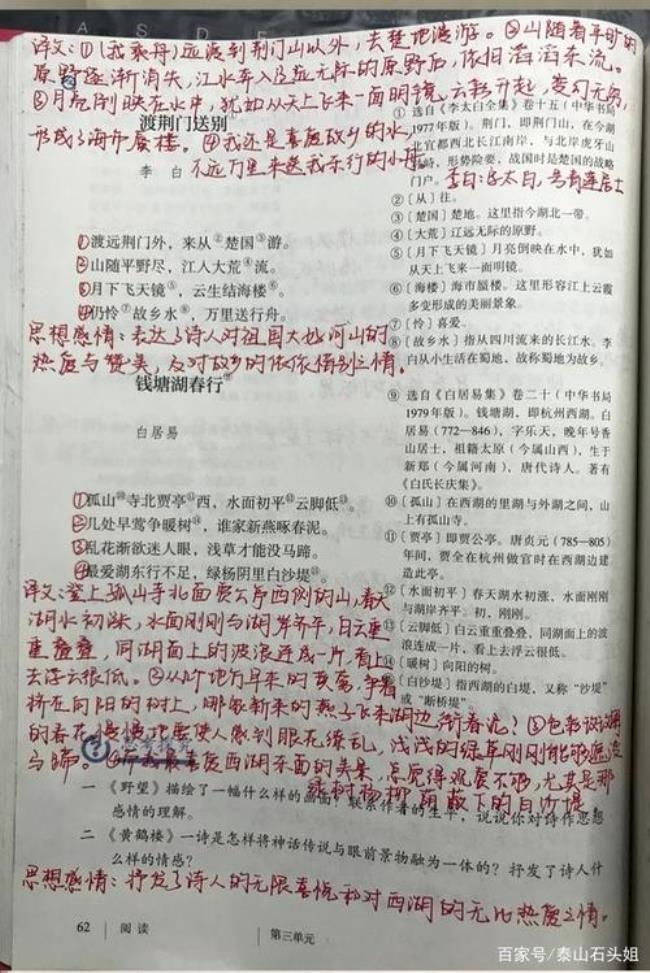 译文:①(我乘舟)远渡到荆门山以外,去楚地漫游。②山随着平旷的
原野逐渐消失,江水奔入辽茫无际的原野后,依旧滔滔东流。
③月亮倒映在水中,犹如从天上飞来一面明镜,云彩升起,变幻无穷,
形成了海市蜃楼。④我还是喜爱故乡的水,
不远万里来送我东行的小舟。
渡荆门送别①
李 白
①渡远荆门外,来从②楚国③游。
②山随平野尽,江入大荒④流。
③月下飞天镜⑤,云生结海楼⑥。
④仍怜⑦故乡水⑧,万里送行舟。
思想感情:表达了诗人对祖国大好河山的
热爱与赞美,及对故乡的依依惜别之情。
① 选自《李太白全集》卷十五(中华书局
1977年版)。荆门,即荆门山,在今湖
北宜都西北长江南岸,与北岸虎牙山
对峙,形势险要,战国时是楚国的战略
门户。
李白:字太白,号青莲居士
②〔从〕往。
③〔楚国〕楚地。这里指今湖北一带。
④〔大荒〕辽远无际的原野。
⑤〔月下飞天镜〕月亮倒映在水中,犹如
从天上飞来一面明镜。
⑥〔海楼〕海市蜃楼。这里形容江上云霞
多变形成的美丽景象。
⑦〔怜〕喜爱。
⑧〔故乡水〕指从四川流来的长江水。李
白从小生活在蜀地,故称蜀地为故乡。
钱塘湖春行⑨
白居易
①孤山⑩寺北贾亭⑪西,水面初平⑫云脚低⑬。
②几处早莺争暖树⑭,谁家新燕啄春泥。
③乱花渐欲迷人眼,浅草才能没马蹄。
④最爱湖东行不足,绿杨阴里白沙堤⑮。
⑨ 选自《白居易集》卷二十(中华书局
1979年版)。钱塘湖,即杭州西湖。白
居易(772—846),字乐天,晚年号香
山居士,祖籍太原(今属山西),生于
新郑(今属河南),唐代诗人。著有
《白氏长庆集》。
⑩〔孤山〕在西湖的里湖与外湖之间,山
上有孤山寺。
⑪〔贾亭〕即贾公亭。唐贞元(785—805)
年间,贾全在杭州做官时在西湖边建
造此亭。
⑫〔水面初平〕春天湖水初涨,水面刚
与湖岸齐平。初,刚刚。
⑬〔云脚低〕白云重重叠叠,同湖面上的波
浪连成一片,看上去浮云很低。
⑭〔暖树〕向阳的树。
⑮〔白沙堤〕指西湖的白堤,又称“沙堤”
或“断桥堤”。
译文:登上孤山寺北面贾公亭西侧的山,春天
湖水初涨,水面刚刚与湖岸齐平,白云重
重叠叠,同湖面上的波浪连成一片,看上
去浮云很低。②从几处早来的黄莺,争着
挤在向阳的树上,哪家新来的燕子飞来湖边衔春泥?③
的春花慢慢地要使人感到眼花缭乱,浅浅的绿草刚刚能够遮没
马蹄。④我最喜爱西湖东面的美景,总觉得观赏不够,尤其是那
绿树杨柳荫蔽下的白沙堤
思考探究
一 《野望》描绘了一幅什么样的画面?联系作者的生平,说说你对诗作思想
感情的理解。
二 《黄鹤楼》一诗是怎样将神话传说与眼前景物融为一体的?抒发了诗人什
么样的情感?
思想感情:抒发了诗人的无限喜悦和对西湖的无比热爱之情。
62 阅读
第三单元
百家号/泰山石头姐